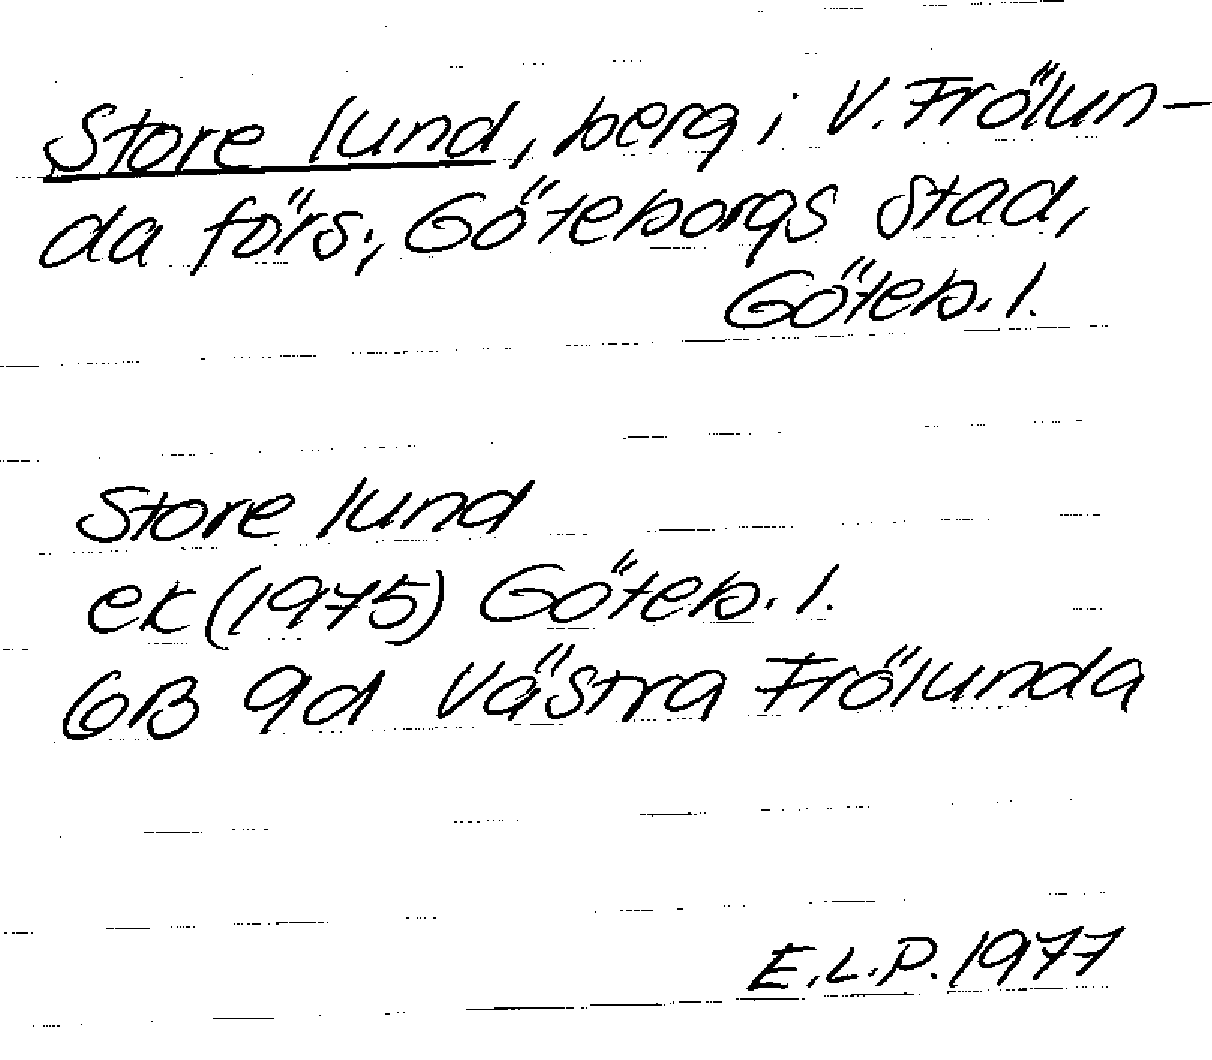 Store lund, berg i V. Frölun-
da förs., Göteborgs stad,
Göteb. l.
Store lund
ek (1975) Göteb. l.
6B 9d Västra Frölunda
E.L.P. 1977